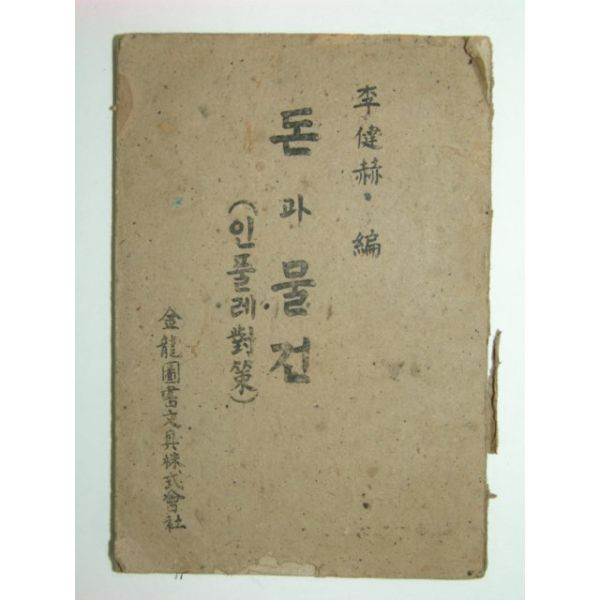 李健赫·編
돈과물건
(인풀레對策)
金龍圖書文具株式會社